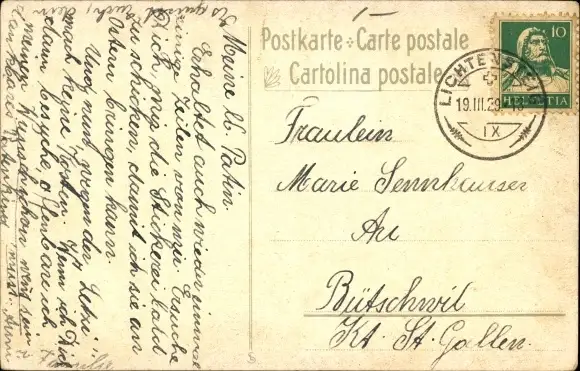 Postkarte - Carte postale
Cartolina postale
10
HELVETIA
LICHTENSTEIG
19.III.29
IX
Fräulein
Marie Sennhauser
Au
Bütschwil
Kt. St. Gallen.
Meine lb. Patin.
Erhaltet auch wieder einmal
einige Zeilen von mir. Ersuche
Dich, mir die Stickerei bald
zu schicken, damit ich sie an
Ostern bringen kann.
Unog nust wegen der
macht keine Kosten. Wenn ich Dich
dann besuche, offenbare ich
meinen
Es grüsst Euch, Dein